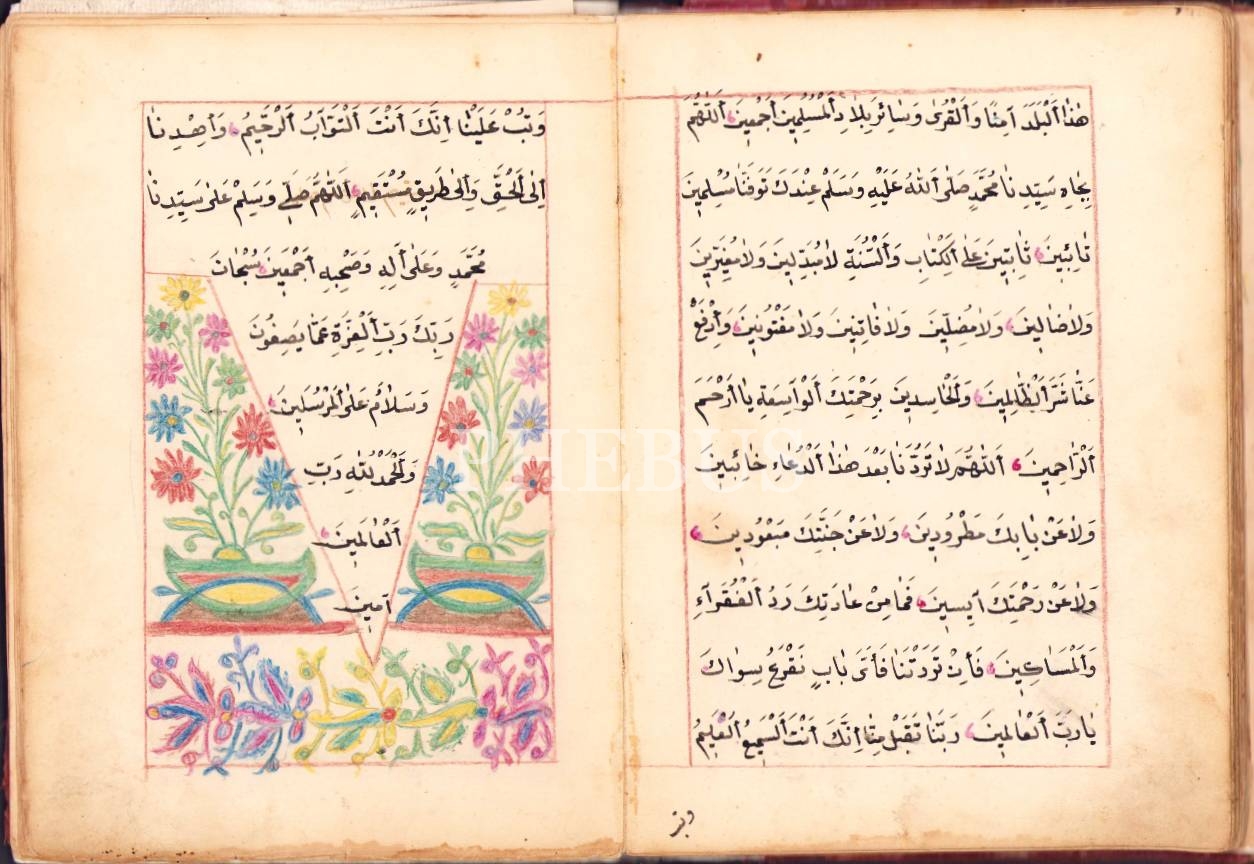 هٰذَا ٱلْبَلَدَ اٰمِنًا وَٱلْقُرٰى وَسَائِرَ بِلَادِ ٱلْمُسْلِمِينَ أَجْمَعِينَ ٱَللّٰهُمَّ
بِجَاهِ سَيِّدِنَا مُحَمَّدٍ صَلَّى ٱللّٰهُ عَلَيْهِ وَسَلَّمَ عِنْدَكَ تَوَفَّنَا مُسْلِمِينَ
تَائِبِينَ ثَابِتِينَ عَلَى ٱلْكِتَابِ وَٱلسُّنَّةِ لَا مُبَدِّلِينَ وَلَا مُغَيِّرِينَ
وَلَا ضَالِّينَ وَلَا مُضِلِّينَ وَلَا فَاتِنِينَ وَلَا مَفْتُونِينَ وَٱرْفَعْ
عَنَّا شَرَّ ٱلظَّالِمِينَ وَٱلْحَاسِدِينَ بِرَحْمَتِكَ ٱلْوَاسِعَةِ يَا أَرْحَمَ
ٱلرَّاحِمِينَ ٱَللّٰهُمَّ لَا تَرُدَّنَا بَعْدَ هٰذَا ٱلدُّعَاءِ خَائِبِينَ
وَلَا عَنْ بَابِكَ مَطْرُودِينَ وَلَا عَنْ جَنَّتِكَ مَبْعُودِينَ
وَلَا عَنْ رَحْمَتِكَ اٰيِسِينَ فَمَا مِنْ عَادَتِكَ رَدُّ ٱلْفُقَرَآءِ
وَٱلْمَسَاكِينَ فَأِنْ تَرُدَّتْنَا فَأَىَّ بَابٍ نَقْرَعُ سِوَاكَ
يَا رَبَّ ٱلْعَالَمِينَ رَبَّنَا تَقَبَّلْ مِنَّا اِنَّكَ أَنْتَ ٱلسَّمِيعُ ٱلْعَلِيمُ
وتب
وَتُبْ عَلَيْنَا اِنَّكَ أَنْتَ ٱلتَّوَّابُ ٱلرَّحِيمُ وَٱهْدِنَا
اِلَى ٱلْحَقِّ وَاِلٰى طَرِيقٍ مُسْتَقِيمٍ ٱَللّٰهُمَّ صَلِّ وَسَلِّمْ عَلٰى سَيِّدِنَا
مُحَمَّدٍ وَعَلٰى أٰلِهِ وَصَحْبِهِ أَجْمَعِينَ سُبْحَانَ
رَبِّكَ رَبِّ ٱلْعِزَّةِ عَمَّا يَصِفُونَ
وَسَلَامٌ عَلَى ٱلْمُرْسَلِينَ
وَٱلْحَمْدُ لِلّٰهِ رَبِّ
ٱلْعَالَمِينَ
اٰمِينَ
PHEBUS